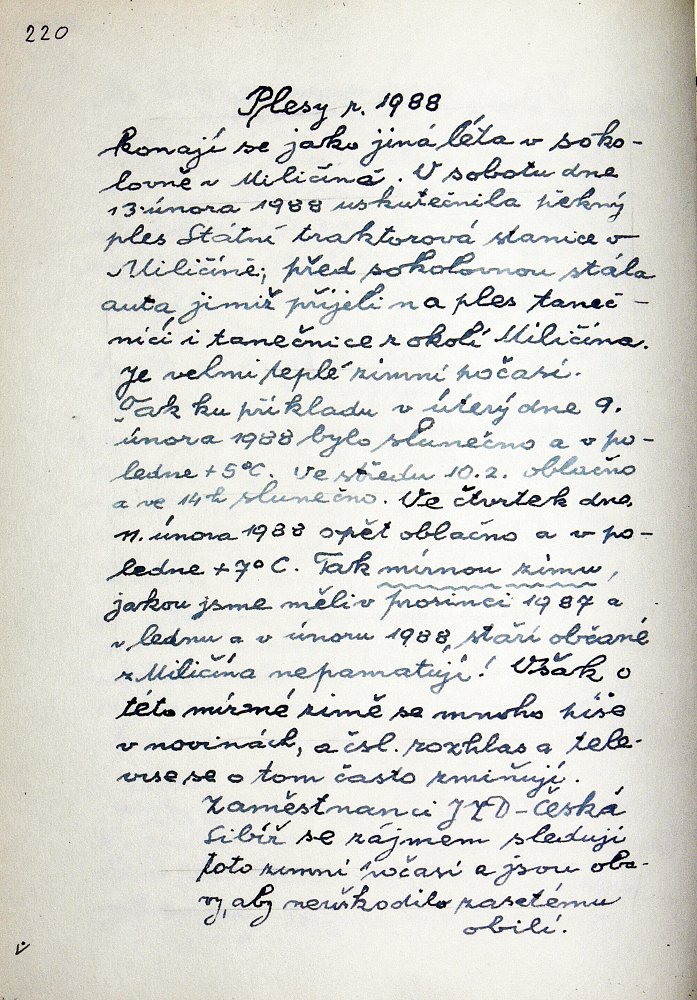 220
Plesy r. 1988
Konají se jako jiná léta v soko-
lovně v Miličíně. V sobotu dne
13. února 1988 uskutečnila pěkný
ples Státní traktorová stanice v
Miličíně; před sokolovnou stála
auta, jimiž přijeli na ples taneč-
níci i tanečnice z okolí Miličína.
Je velmi teplé zimní počasí.
Tak ku příkladu v úterý dne 9.
února 1988 bylo slunečno a v po-
ledne +5°C. Ve středu 10.2. oblačno
a ve 14h slunečno. Ve čtvrtek dne
11. února 1988 opět oblačno a v po-
ledne +7°C. Tak mírnou zimu,
jakou jsme měli v prosinci 1987 a
v lednu a v únoru 1988, staří občané
z Miličína nepamatují! Však o
této mírné zimě se mnoho píše
v novinách, a čsl. rozhlas a tele-
vise se o tom často zmiňují.
Zaměstnanci JZD-Česká
Sibiř se zájmem sledují
toto zimní počasí a jsou oba-
vy, aby neuškodilo zasetému
obilí.